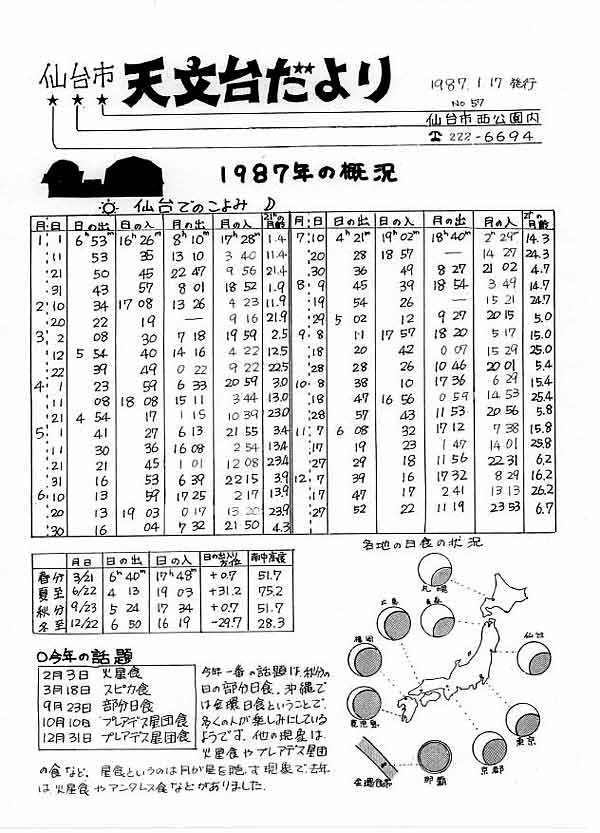 仙台市 天文台だより
1987.1.17発行
No 57
仙台市西公園内
☎ 222-6694
1987年の概況
仙台でのこよみ
月:日 日の出 日の入 月の出 月の入 21hの月齢
1:1 6h53m 16h26m 8h10m 17h28m 1.4
11 53 35 13 10 3 40 11.4
21 50 45 22 47 9 56 21.4
31 43 57 8 01 18 52 1.9
2:10 34 17 08 13 26 4 23 11.9
20 22 19 — 9 16 21.9
3:2 08 30 7 18 19 59 2.5
12 5 54 40 14 16 4 22 12.5
22 39 49 0 22 9 22 22.5
4:1 23 59 6 33 20 59 3.0
11 08 18 08 15 11 3 44 13.0
21 4 54 17 1 15 10 39 23.0
5:1 41 27 6 13 21 55 3.4
11 30 36 16 08 2 54 13.4
21 21 45 1 01 12 08 23.4
31 16 53 6 39 22 15 3.9
6:10 13 59 17 25 2 17 13.9
20 13 19 03 0 17 13 20 23.9
30 16 04 7 32 21 50 4.3
月:日 日の出 日の入 月の出 月の入 21hの月齢
7:10 4h21m 19h02m 18h40m 2h29m 14.3
20 28 18 57 — 14 27 24.3
30 36 49 8 27 21 02 4.7
8:9 45 39 18 54 3 49 14.7
19 54 26 — 15 21 24.7
29 5 02 12 9 27 20 15 5.0
9:8 11 17 57 18 20 5 17 15.0
18 20 42 0 07 15 29 25.0
28 28 26 10 46 20 01 5.4
10:8 38 10 17 36 6 29 15.4
18 47 16 56 0 59 14 53 25.4
28 57 43 11 53 20 56 5.8
11:7 6 08 32 17 12 7 38 15.8
17 19 23 1 47 14 01 25.8
27 29 18 11 56 22 31 6.2
12:7 39 16 17 32 8 29 16.2
17 47 17 2 41 13 13 26.2
27 52 22 11 19 23 53 6.7
月日 日の出 日の入 日の出入り方位 南中高度
春分 3/21 6h40m 17h48m +0.7 51.7
夏至 6/22 4 13 19 03 +31.2 75.2
秋分 9/23 5 24 17 34 +0.7 51.7
冬至 12/22 6 50 16 19 -29.7 28.3
各地の日食の状況
札幌
広島
青森
福岡
仙台
鹿児島
東京
京都
金環食帯
那覇
○今年の話題
2月3日 火星食
3月18日 スピカ食
9月23日 部分日食
10月10日 プレアデス星団食
12月31日 プレアデス星団食
今年一番の話題は、秋分の
日の部分日食。沖縄で
は金環日食ということで、
多くの人が楽しみにしている
ようです。他の現象は、
火星食やプレアデス星団
の食など。星食というのは月が星を隠す現象で、去年
は、火星食やアンタレス食などがありました。